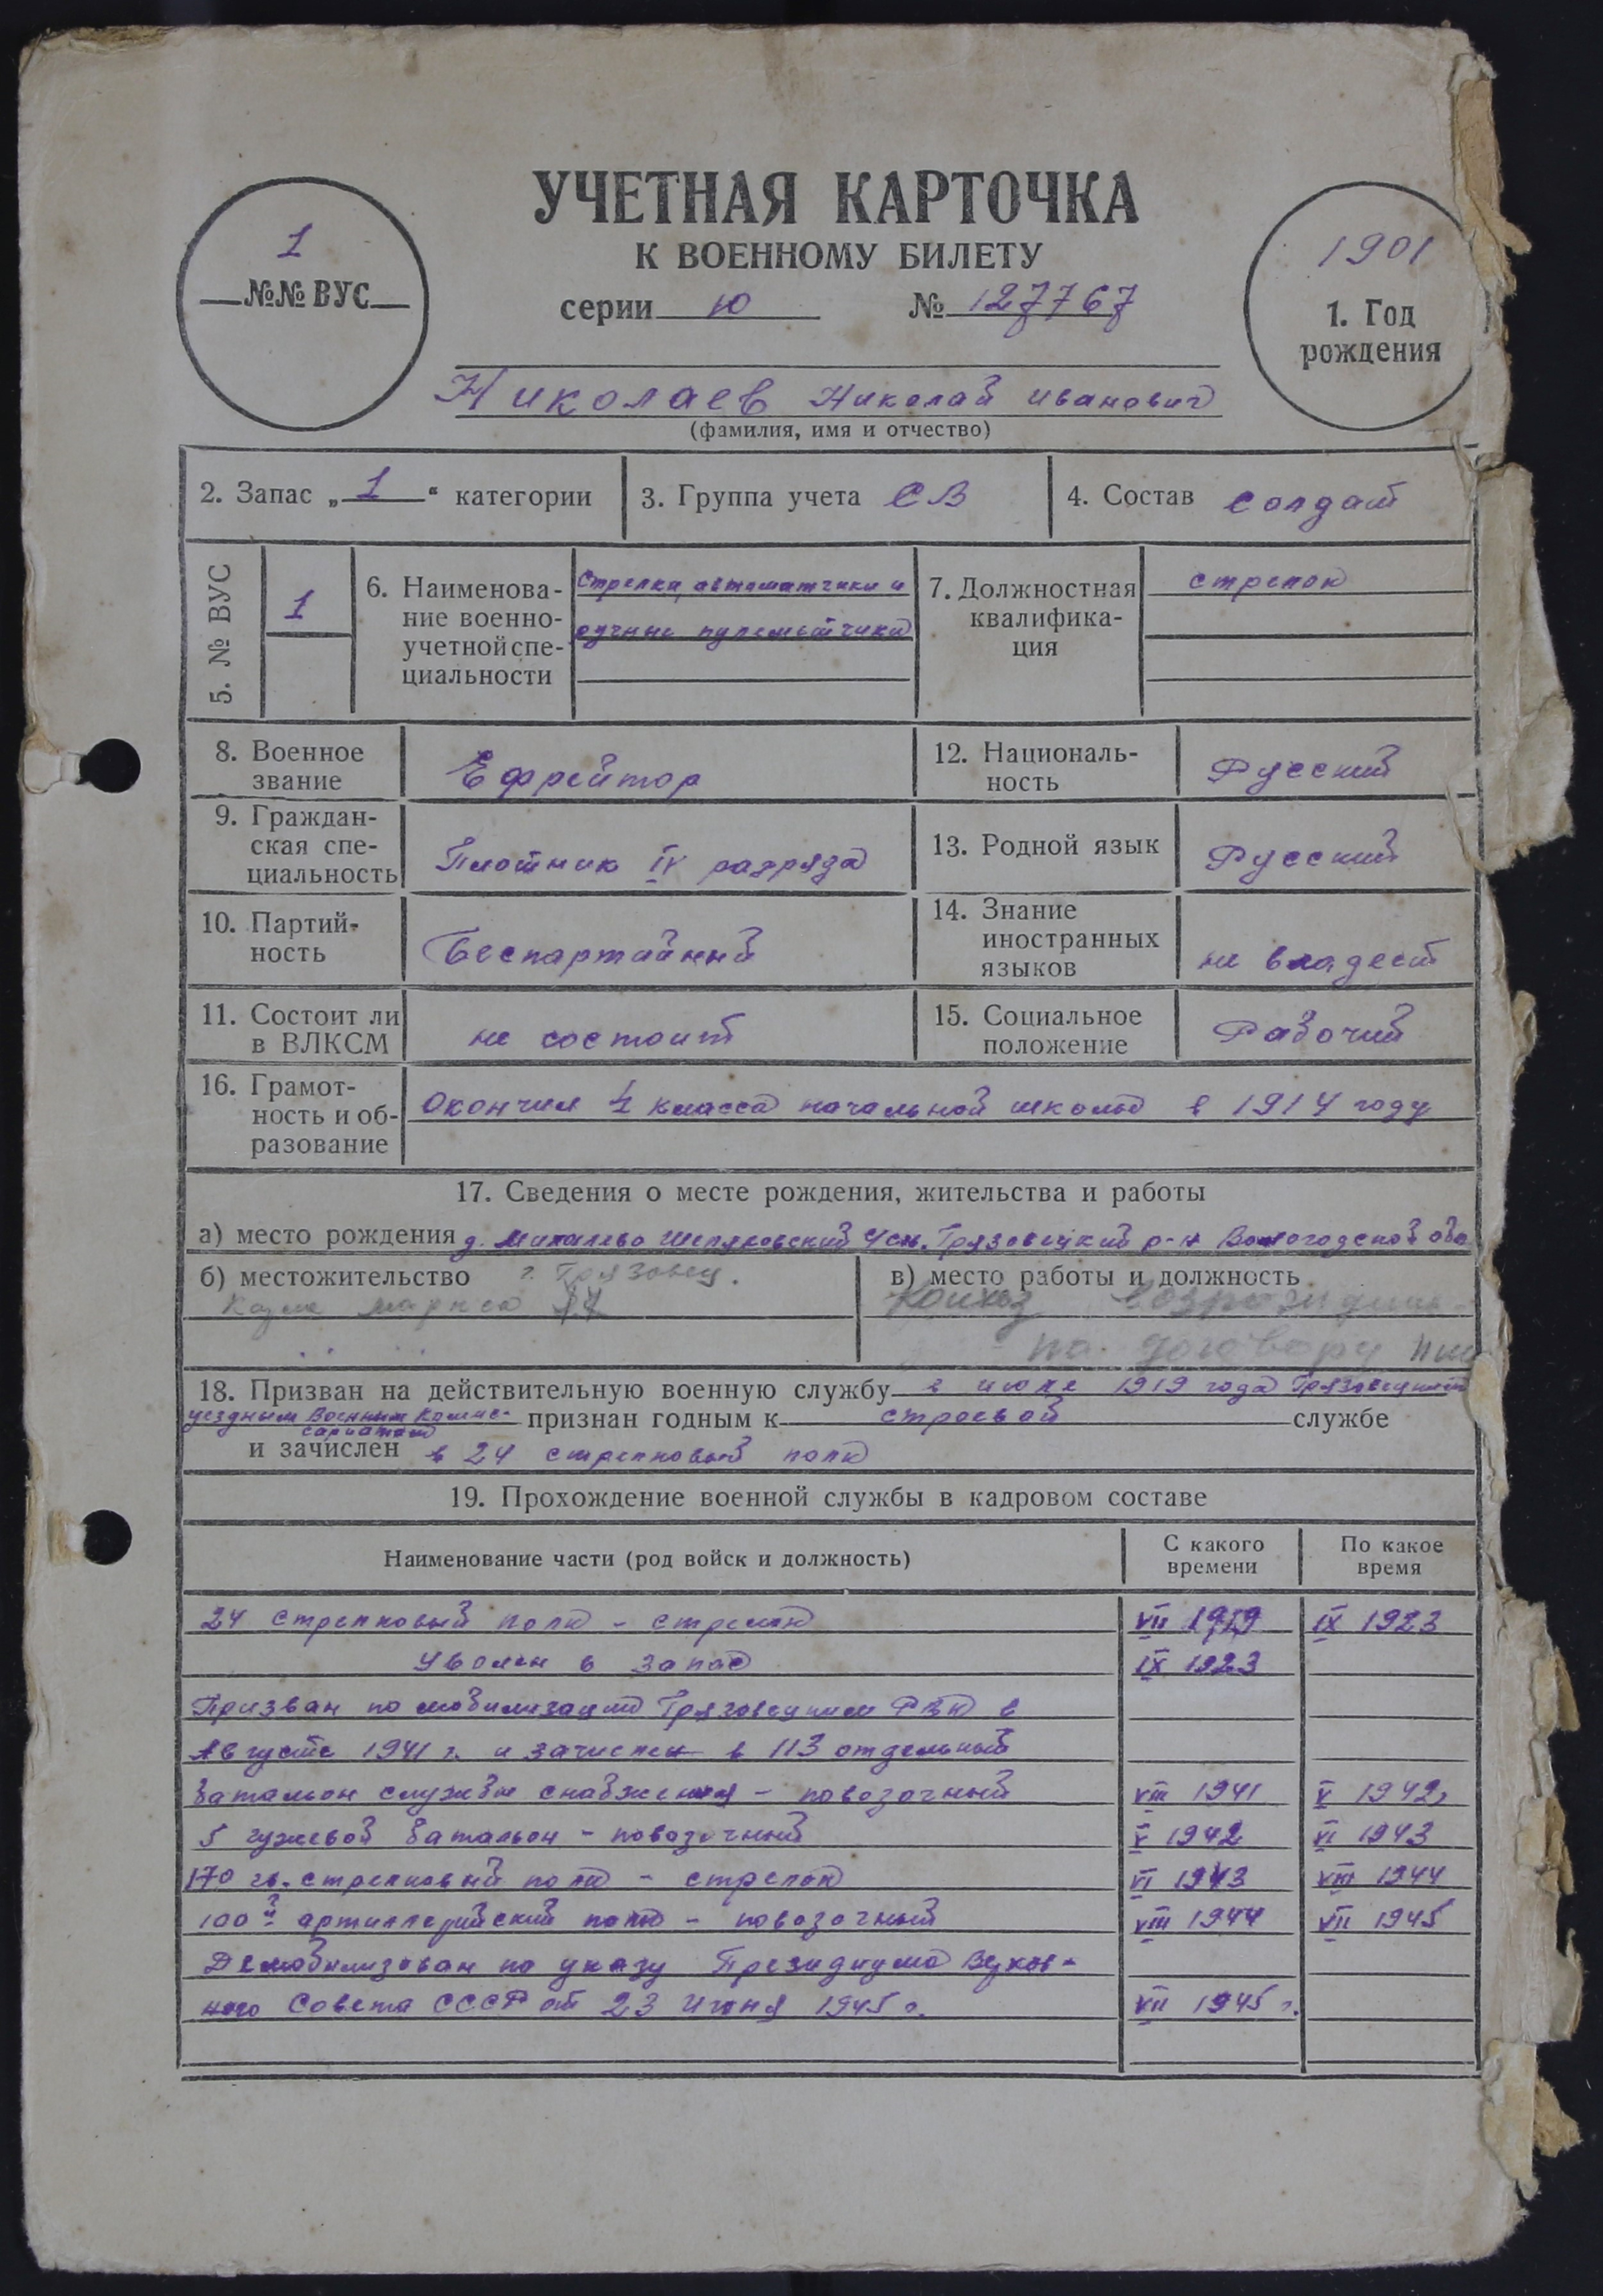 УЧЕТНАЯ КАРТОЧКА
К ВОЕННОМУ БИЛЕТУ
1
№№ ВУС
серии Ю № 127767
1901
1. Год
рождения
Николаев Николай Иванович
(фамилия, имя и отчество)
2. Запас „1“ категории
3. Группа учета СВ
4. Состав солдат
5. № ВУС
1
6. Наименова-
ние военно-
учетной спе-
циальности
Стрелки, автоматчики и
ручные пулеметчики
7. Должностная
квалифика-
ция
стрелок
8. Военное
звание
Ефрейтор
12. Националь-
ность
Русский
9. Граждан-
ская спе-
циальность
Плотник IV разряда
13. Родной язык
Русский
10. Партий-
ность
Беспартийный
14. Знание
иностранных
языков
не владеет
11. Состоит ли
в ВЛКСМ
не состоит
15. Социальное
положение
Рабочий
16. Грамот-
ность и об-
разование
Окончил 4 класса начальной школы в 1914 году
17. Сведения о месте рождения, жительства и работы
а) место рождения д. Михалево Шепяковский Усн. Грязовецкий р-н Вологодской обл
б) местожительство г. Грязовец.
Карла маркса
в) место работы и должность
Колхоз
по договору
18. Призван на действительную военную службу в июле 1919 года Грязовецким
уездным Военным Комис-
сариатом
признан годным к строевой службе
и зачислен в 24 стрелковый полк
19. Прохождение военной службы в кадровом составе
Наименование части (род войск и должность)
С какого
времени
По какое
время
24 стрелковый полк - стрелок VII 1919 IX 1923
Уволен в запас IX 1923
Призван по мобилизации Грязовецким РВК в
Августе 1941 г. и зачислен в 113 отдельный
батальон службы снабжения - повозочный VIII 1941 V 1942
5 гужевой батальон - повозочный V 1942 VI 1943
170 гв. стрелковый полк - стрелок VI 1943 VIII 1944
100й артиллерийский полк - повозочный VIII 1944 VII 1945
Демобилизован по указу Президиума Верхов-
ного Совета СССР от 23 Июня 1945 г. VII 1945 г.